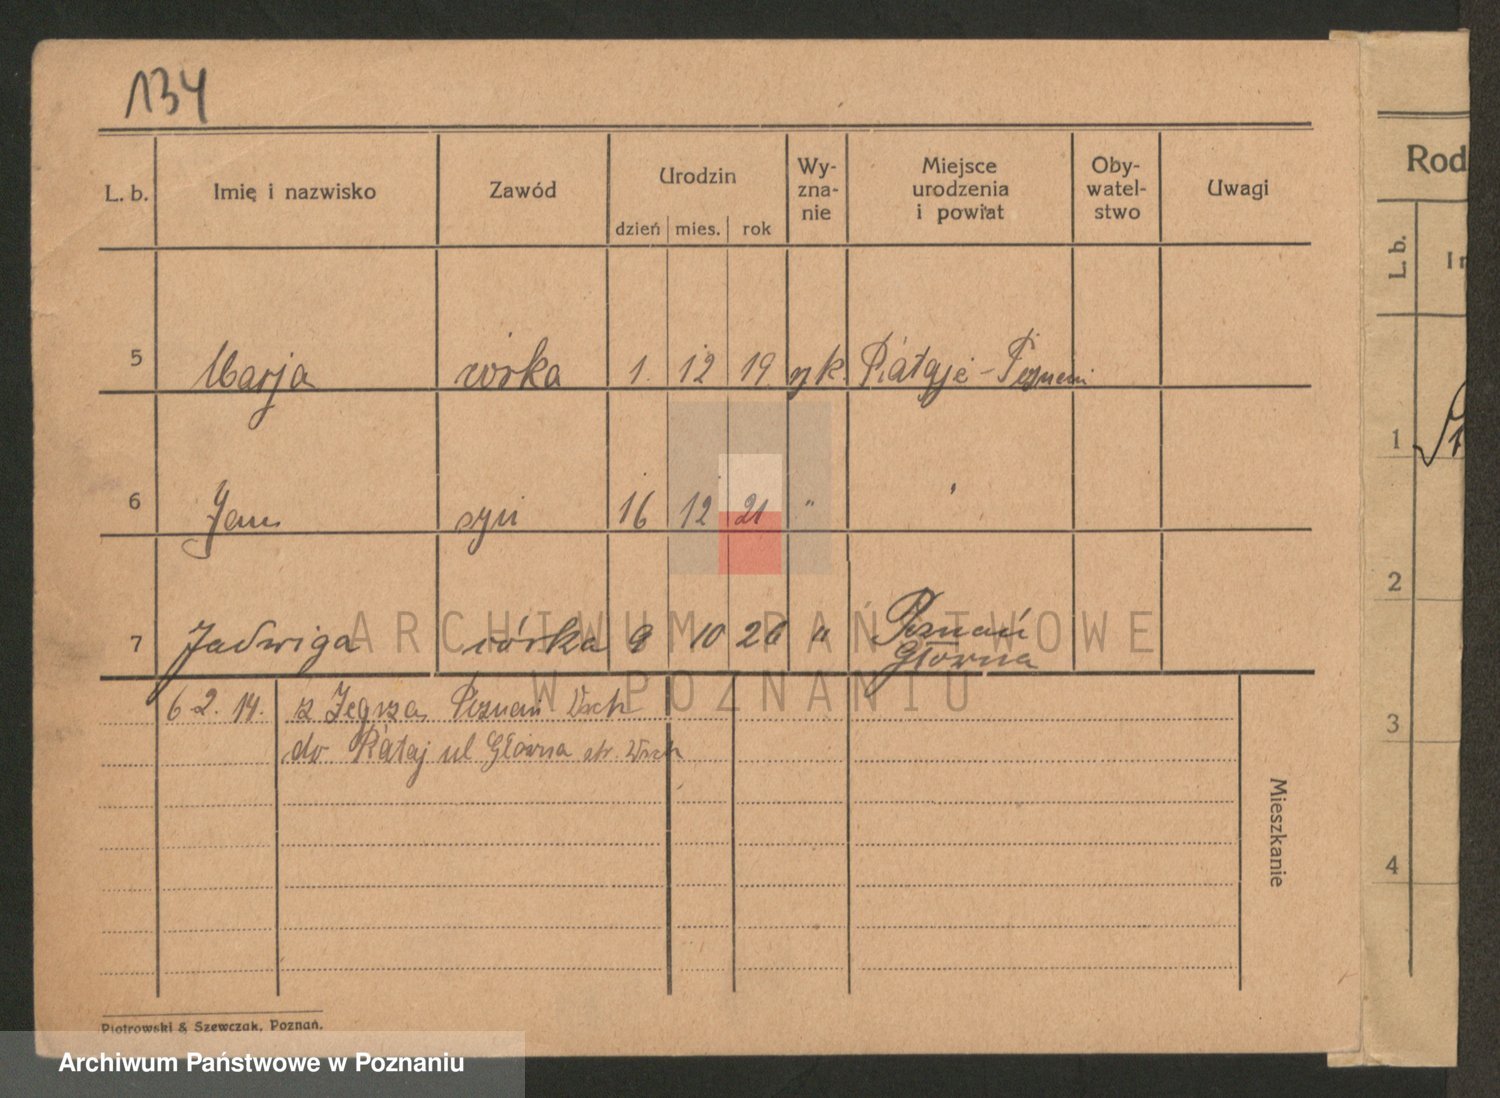 134
L. b. Imię i nazwisko Zawód Urodzin Wy-zna-nie Miejsce urodzenia i powiat Oby-watel-stwo Uwagi
dzień mies. rok
5 Marja córka 1. 12 19. rzk. Rataje - Poznań
6 Jan syn 16 12 21 " "
7 Jadwiga córka 9 10 26 " Poznań
Główna
6 2. 14. z Żegrza Poznań Wsch
do Rataj ul Główna str. Wsch
Mieszkanie
Piotrowski & Szewczak, Poznań.
Rod
L. b.
1
2
3
4
ARCHIWUM PAŃSTWOWE
W POZNANIU
Archiwum Państwowe w Poznaniu